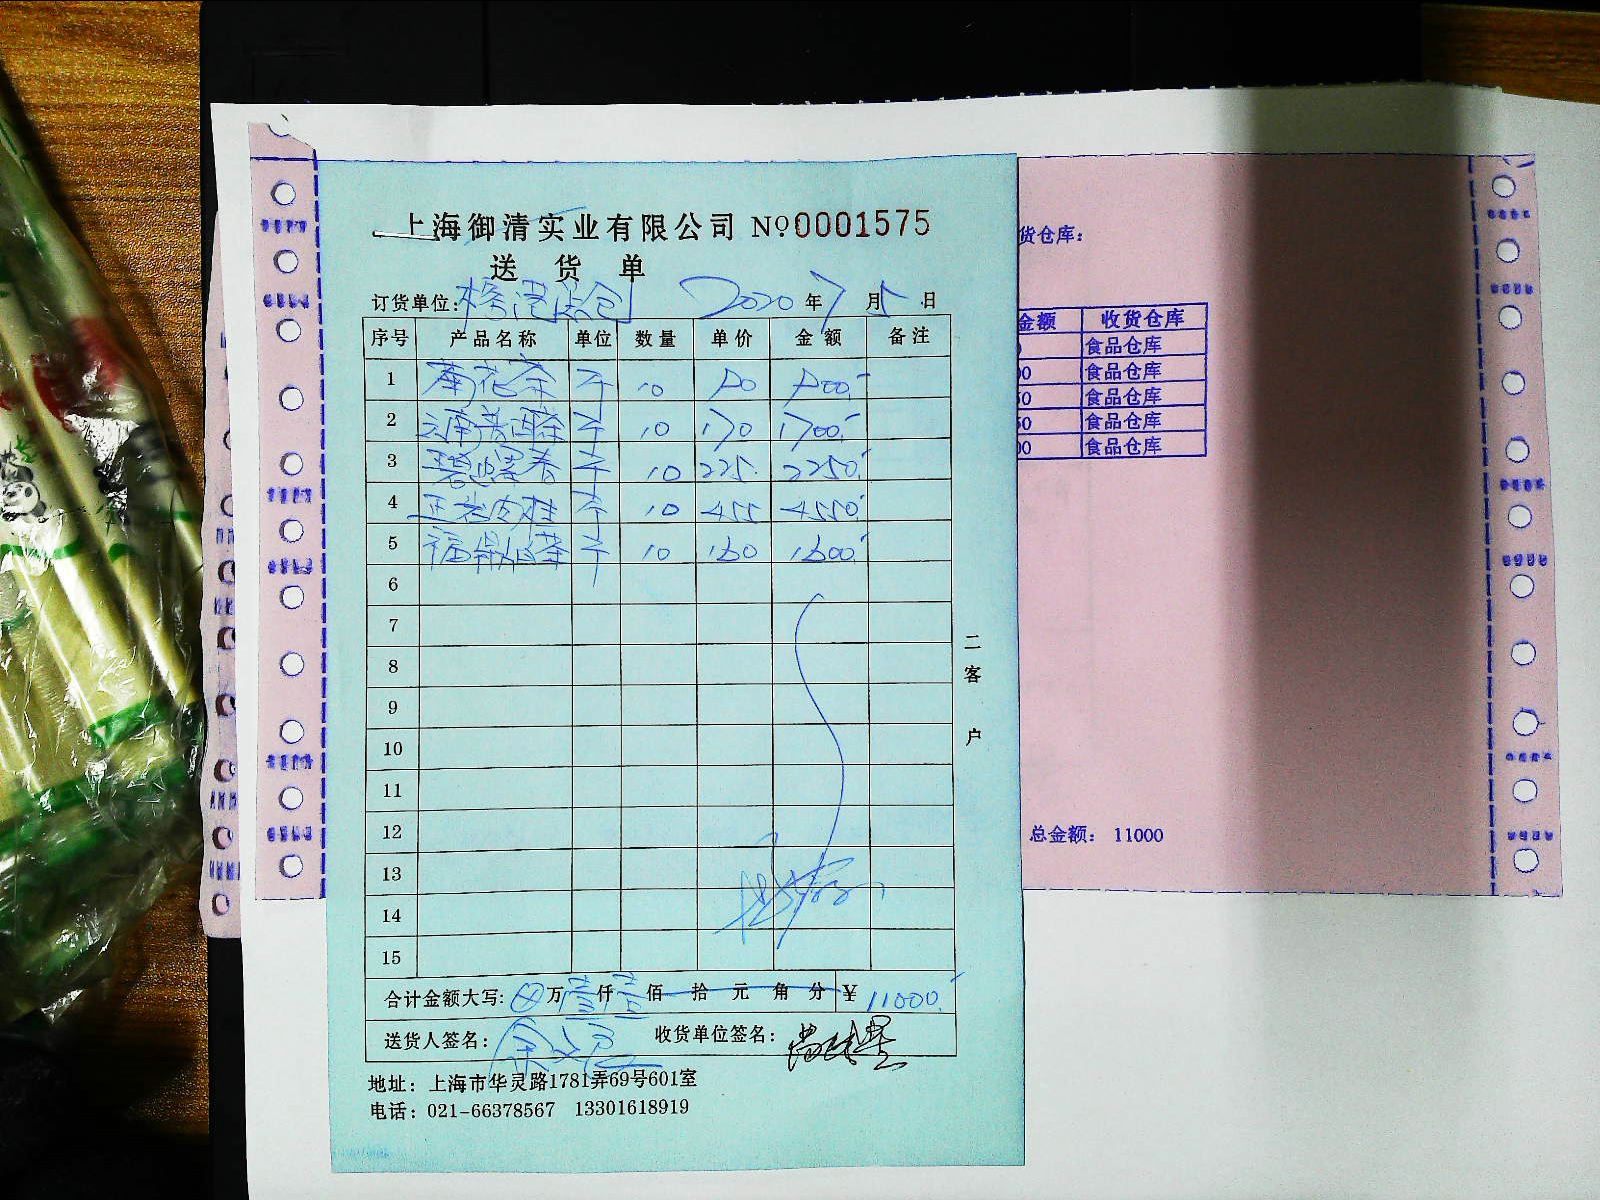 上海御清实业有限公司 No 0001575
送货单
订货单位: 2020年7月5日
序号 产品名称 单位 数量 单价 金额 备注
1 菊花茶 斤 10 900.-
2 云南普洱茶 斤 10 170 1700.-
3 碧螺春 斤 10 225. 2250.-
4 正岩肉桂 斤 10 455 4550.-
5 福鼎白茶 斤 10 160 1600.-
6
7
8
9
10
11
12
13
14
15
合计金额大写: ⊗万壹仟壹佰拾元角分 ¥ 11000.-
送货人签名: 收货单位签名:
地址: 上海市华灵路1781弄69号601室
电话: 021-66378567 13301618919
二客户
货仓库:
金额 收货仓库
食品仓库
食品仓库
食品仓库
食品仓库
食品仓库
总金额: 11000